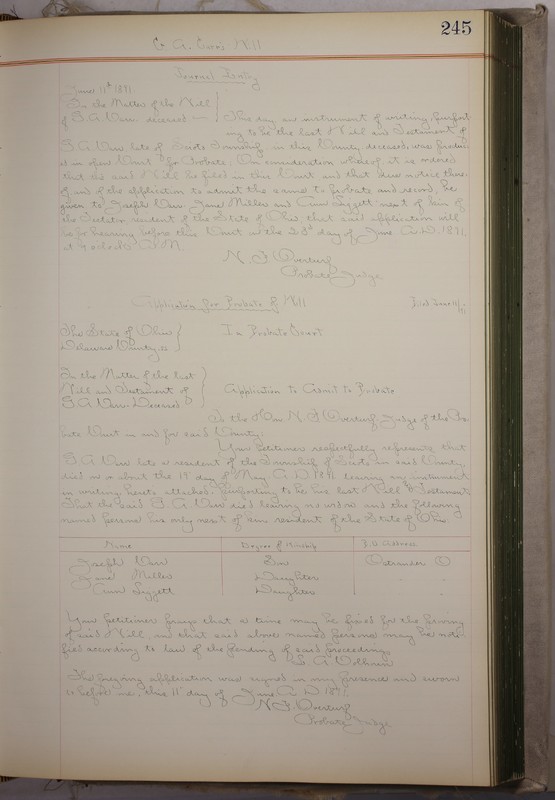 245
Will
Journal Entry
June 11th 1891
In the Matter of the Will
of deceased
This day an instrument of writing purport
ing to be the last Will and Testament of
late of Scioto Township, in this County deceased, was produc
ed in open Court for Probate. On consideration whereof, it is ordered
that the said Will be filed in this Court and that due notice there
of and of the application to admit the same to probate and record, be
given to Joseph Jane Miller and Ann Liggett next of kin of
the Testator resident of the State of Ohio that said application will
be for hearing before this Court on the 23d day of June A.D. 1891,
at 9 o'clock A.M.
N F Overturf
Probate Judge
Application for Probate of Will
Filed June 11/91
The State of Ohio
Delaware County ss
In Probate Court
In the Matter of the last
Will and Testament of
Deceased
Application to Admit to Probate
To the Hon N. F Overturf Judge of the Pro
bate Court in and for said County:
Your Petitioner respectfully represents that
late a resident of the Township of Scioto in said County
died on or about the 19" day of May A D 1891 leaving an instrument
in writing hereto attached, purporting to be his last Will & Testament
That the said died leaving no widow and the following
named persons his only next of kin resident of the State of Ohio
Name Degree of Kinship P.O. Address
Joseph Son Ostrander O
Jane Miller Daughter " "
Ann Liggett Daughter " "
Your petitioner prays that a time may be fixed for the proving
of said Will, and that said above named persons may be noti
fied according to law of the pending of said proceedings
The foregoing application was signed in my presence and sworn
to before me, this 11" day of June A. D 1891.
N F Overturf
Probate Judge